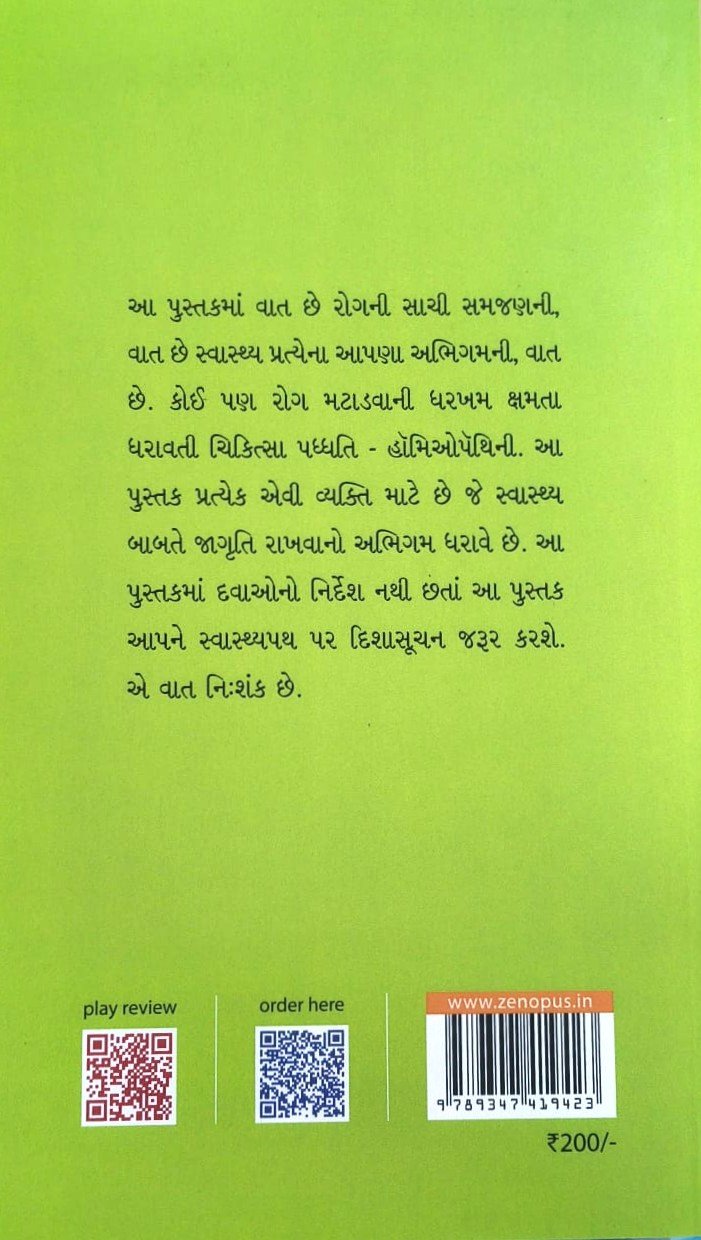 આ પુસ્તકમાં વાત છે રોગની સાચી સમજણની,
વાત છે સ્વાસ્થ્ય પ્રત્યેના આપણા અભિગમની, વાત
છે. કોઈ પણ રોગ મટાડવાની ધરખમ ક્ષમતા
ધરાવતી ચિકિત્સા પધ્ધતિ - હૉમિઓપૅથિની. આ
પુસ્તક પ્રત્યેક એવી વ્યક્તિ માટે છે જે સ્વાસ્થ્ય
બાબતે જાગૃતિ રાખવાનો અભિગમ ધરાવે છે. આ
પુસ્તકમાં દવાઓનો નિર્દેશ નથી છતાં આ પુસ્તક
આપને સ્વાસ્થ્યપથ પર દિશાસૂચન જરૂર કરશે.
એ વાત નિઃશંક છે.
play review
order here
www.zenopus.in
9 789347 419423
₹200/-